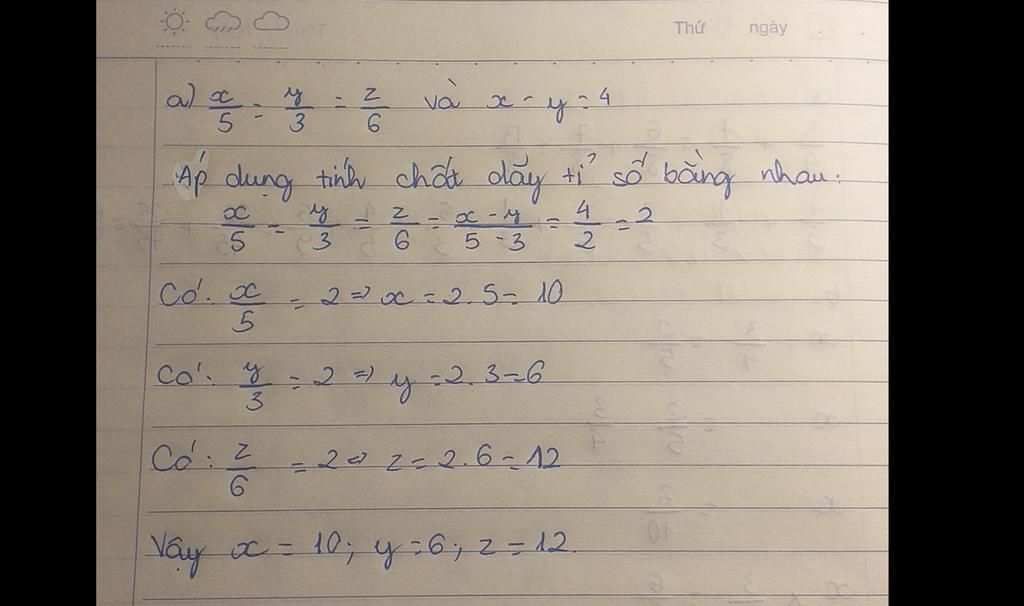 Thứ ngày
a) x/5 = y/3 = z/6 và x - y = 4
Áp dụng tính chất dãy tỉ số bằng nhau:
x/5 = y/3 = z/6 = x - y/5 - 3 = 4/2 = 2
Có: x/5 = 2 => x = 2.5 = 10
Có: y/3 = 2 => y = 2.3 = 6
Có: z/6 = 2 => z = 2.6 = 12
Vậy x = 10; y = 6; z = 12.